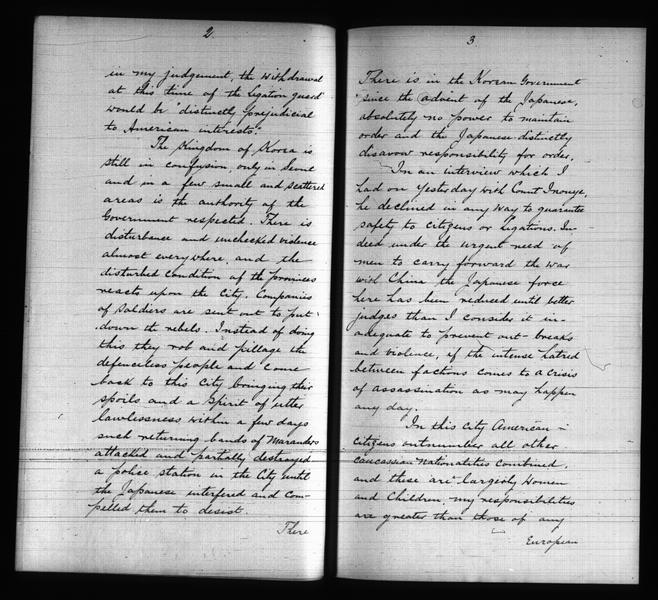 2
in my judgement, the withdrawal
at this time of the legation guard
would be "distinctly prejudicial
to American interests".
The Kingdom of Korea is
still in confusion, only in Seoul
and in a few small and scattered
areas is the authority of the
Government respected. There is
disturbance and unchecked violence
almost everywhere, and the
disturbed condition of the provinces
reacts upon the City. Companies
of soldiers are sent out to put
down the rebels. Instead of doing
this they rob and pillage the
defenceless people and come
back to this City bringing their
spoils and a spirit of utter
lawlessness within a few days
such returning bands of Marauders
attacked and partially destroyed
a police station in the City until
the Japanese interfered and com-
pelled them to desist.
There
3
There is in the Korean Government
since the advent of the Japanese,
absolutely no power to maintain
order and the Japanese distinctly
disavow responsibility for order.
In an interview which I
had on yesterday with Count Inouye,
he declined in any way to guarantee
safety to citizens or Legations. In-
deed under the urgent need of
men to carry forward the war
with China the Japanese force
here has been reduced until better
judges than I consider it in-
adequate to prevent out-breaks
and violence, if the intense hatred
between factions comes to a crisis
of assassination as may happen
any day.
In this city American
Citizens outnumber all other
Caucassian nationalities combined,
and these are largely women
and Children, my responsibilities
are greater than those of any
European